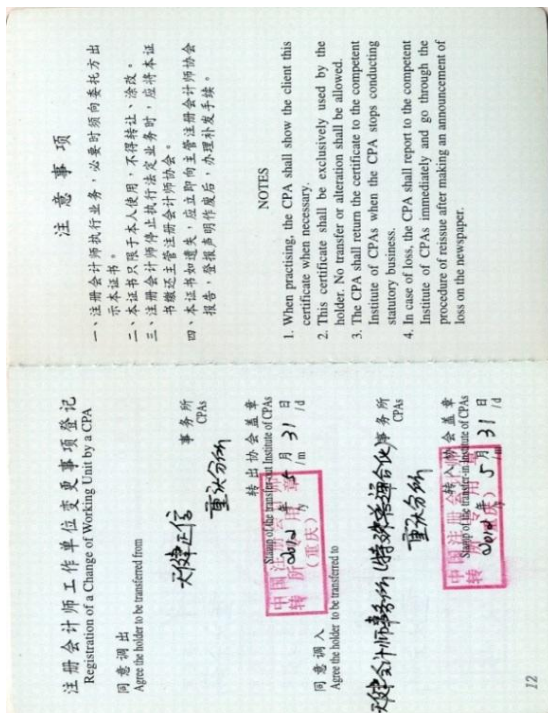 注册会计师工作单位变更事项登记
Registration of a Change of Working Unit by a CPA
同意调出
Agree the holder to be transferred from
天健正信 事务所
CPAs
重庆分所
转出协会盖章
Stamp of the transfer-out Institute of CPAs
中国注册会计师
转所专用章
（重庆）
2012年5月31日
/y /m /d
同意调入
Agree the holder to be transferred to
天健会计师事务所(特殊普通合伙)事务所
CPAs
重庆分所
转入协会盖章
Stamp of the transfer-in Institute of CPAs
中国注册会计师
转所专用章
（重庆）
2012年5月31日
/y /m /d
12
注意事项
一、注册会计师执行业务，必要时须向委托方出
示本证书。
二、本证书只限于本人使用，不得转让、涂改。
三、注册会计师停止执行法定业务时，应将本证
书缴还主管注册会计师协会。
四、本证书如遗失，应立即向主管注册会计师协会
报告，登报声明作废后，办理补发手续。
NOTES
1. When practising, the CPA shall show the client this
certificate when necessary.
2. This certificate shall be exclusively used by the
holder. No transfer or alteration shall be allowed.
3. The CPA shall return the certificate to the competent
Institute of CPAs when the CPA stops conducting
statutory business.
4. In case of loss, the CPA shall report to the competent
Institute of CPAs immediately and go through the
procedure of reissue after making an announcement of
loss on the newspaper.